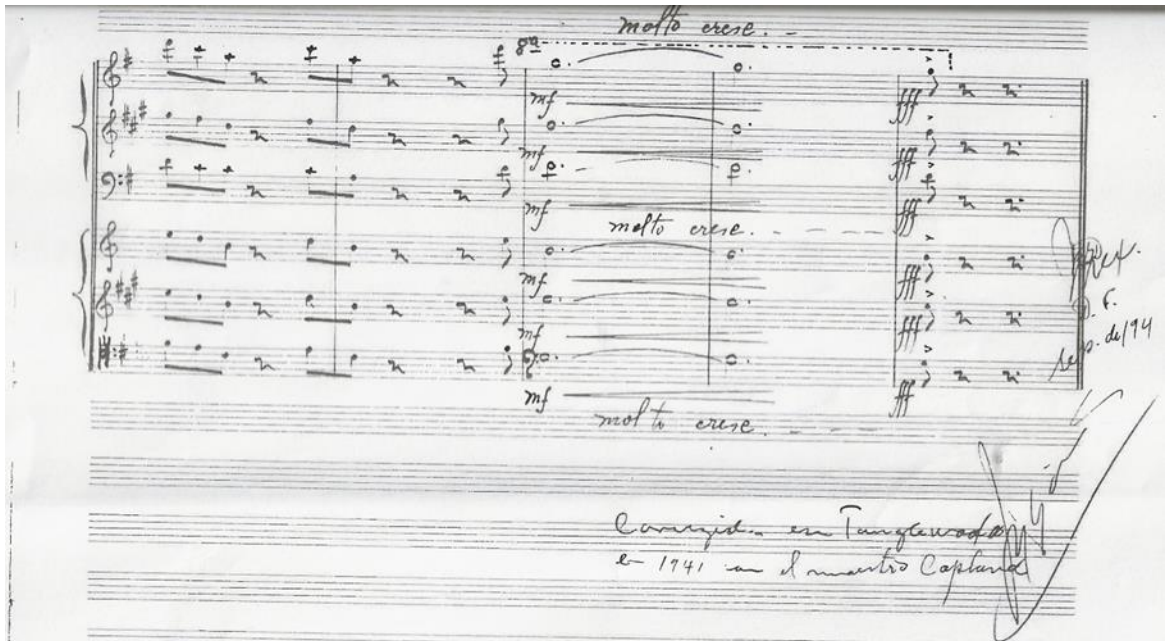 molto cresc. -
8ª
mf
mf
mf
molto cresc. - - - -
mf
mf
mf
molto cresc. - - -
fff
fff
fff
fff
fff
fff
Mex.
D. F.
sep. de/194
Corregida en Tanglewood
en 1941 con el maestro Copland